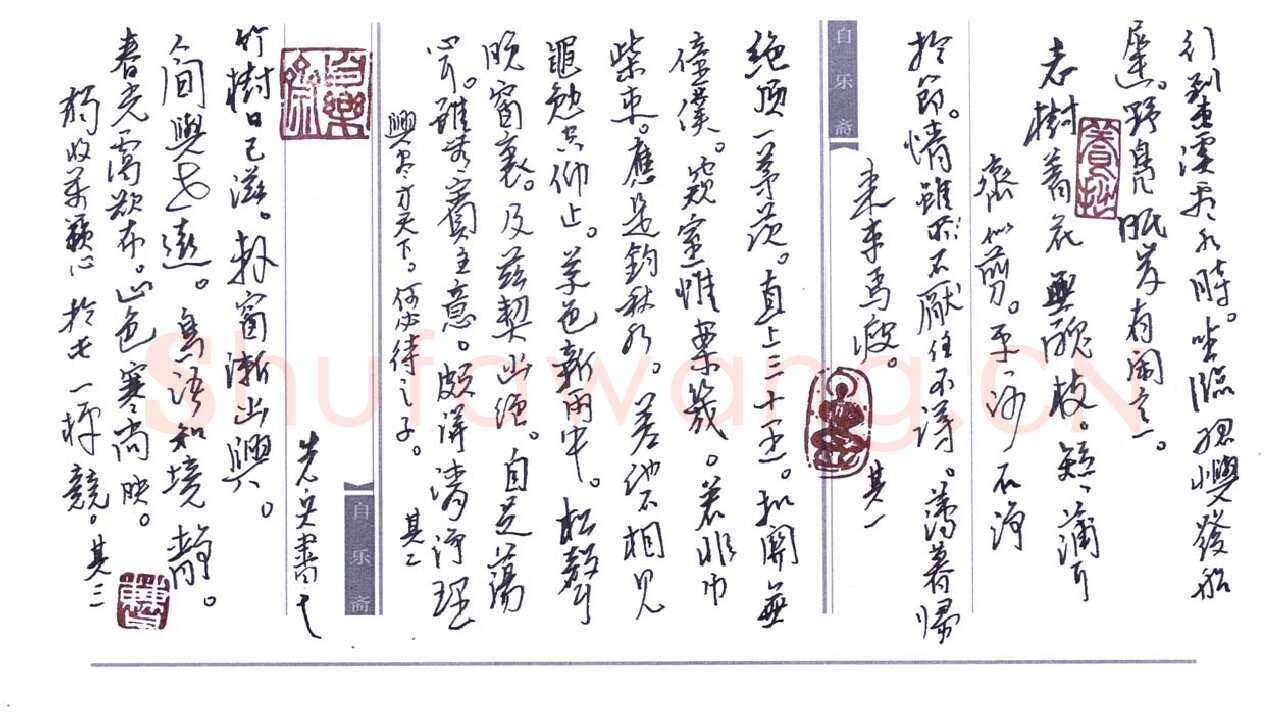 行到東溪看水時。坐臨孤嶼發船
遲。野鳥眠岸有閑意。
養拙
老樹著花無醜枝。短短蒲耳
齊似剪。平平沙石淨
於篩。情雖不厭住不得。薄暮歸
來車馬疲。其一
自乐斋
絕頂一茅茨。直上三十里。扣關無
僮僕。窺室惟案几。若非巾
柴車。應是釣秋水。差池不相見
黽勉空仰止。草色新雨中。松聲
晚窗裏。及茲契幽絕。自足蕩
心耳。雖無賓主意。頗得清淨理
興盡方天下。何必待之子。其二
自乐斋
自樂齋
竹樹日已滋。軒窗漸幽興。
人間與世遠。鳥語知境靜。
春光靄欲布。山色寒尚映。
獨收萬籟心於此一枰競。其三
Shufawang.CN